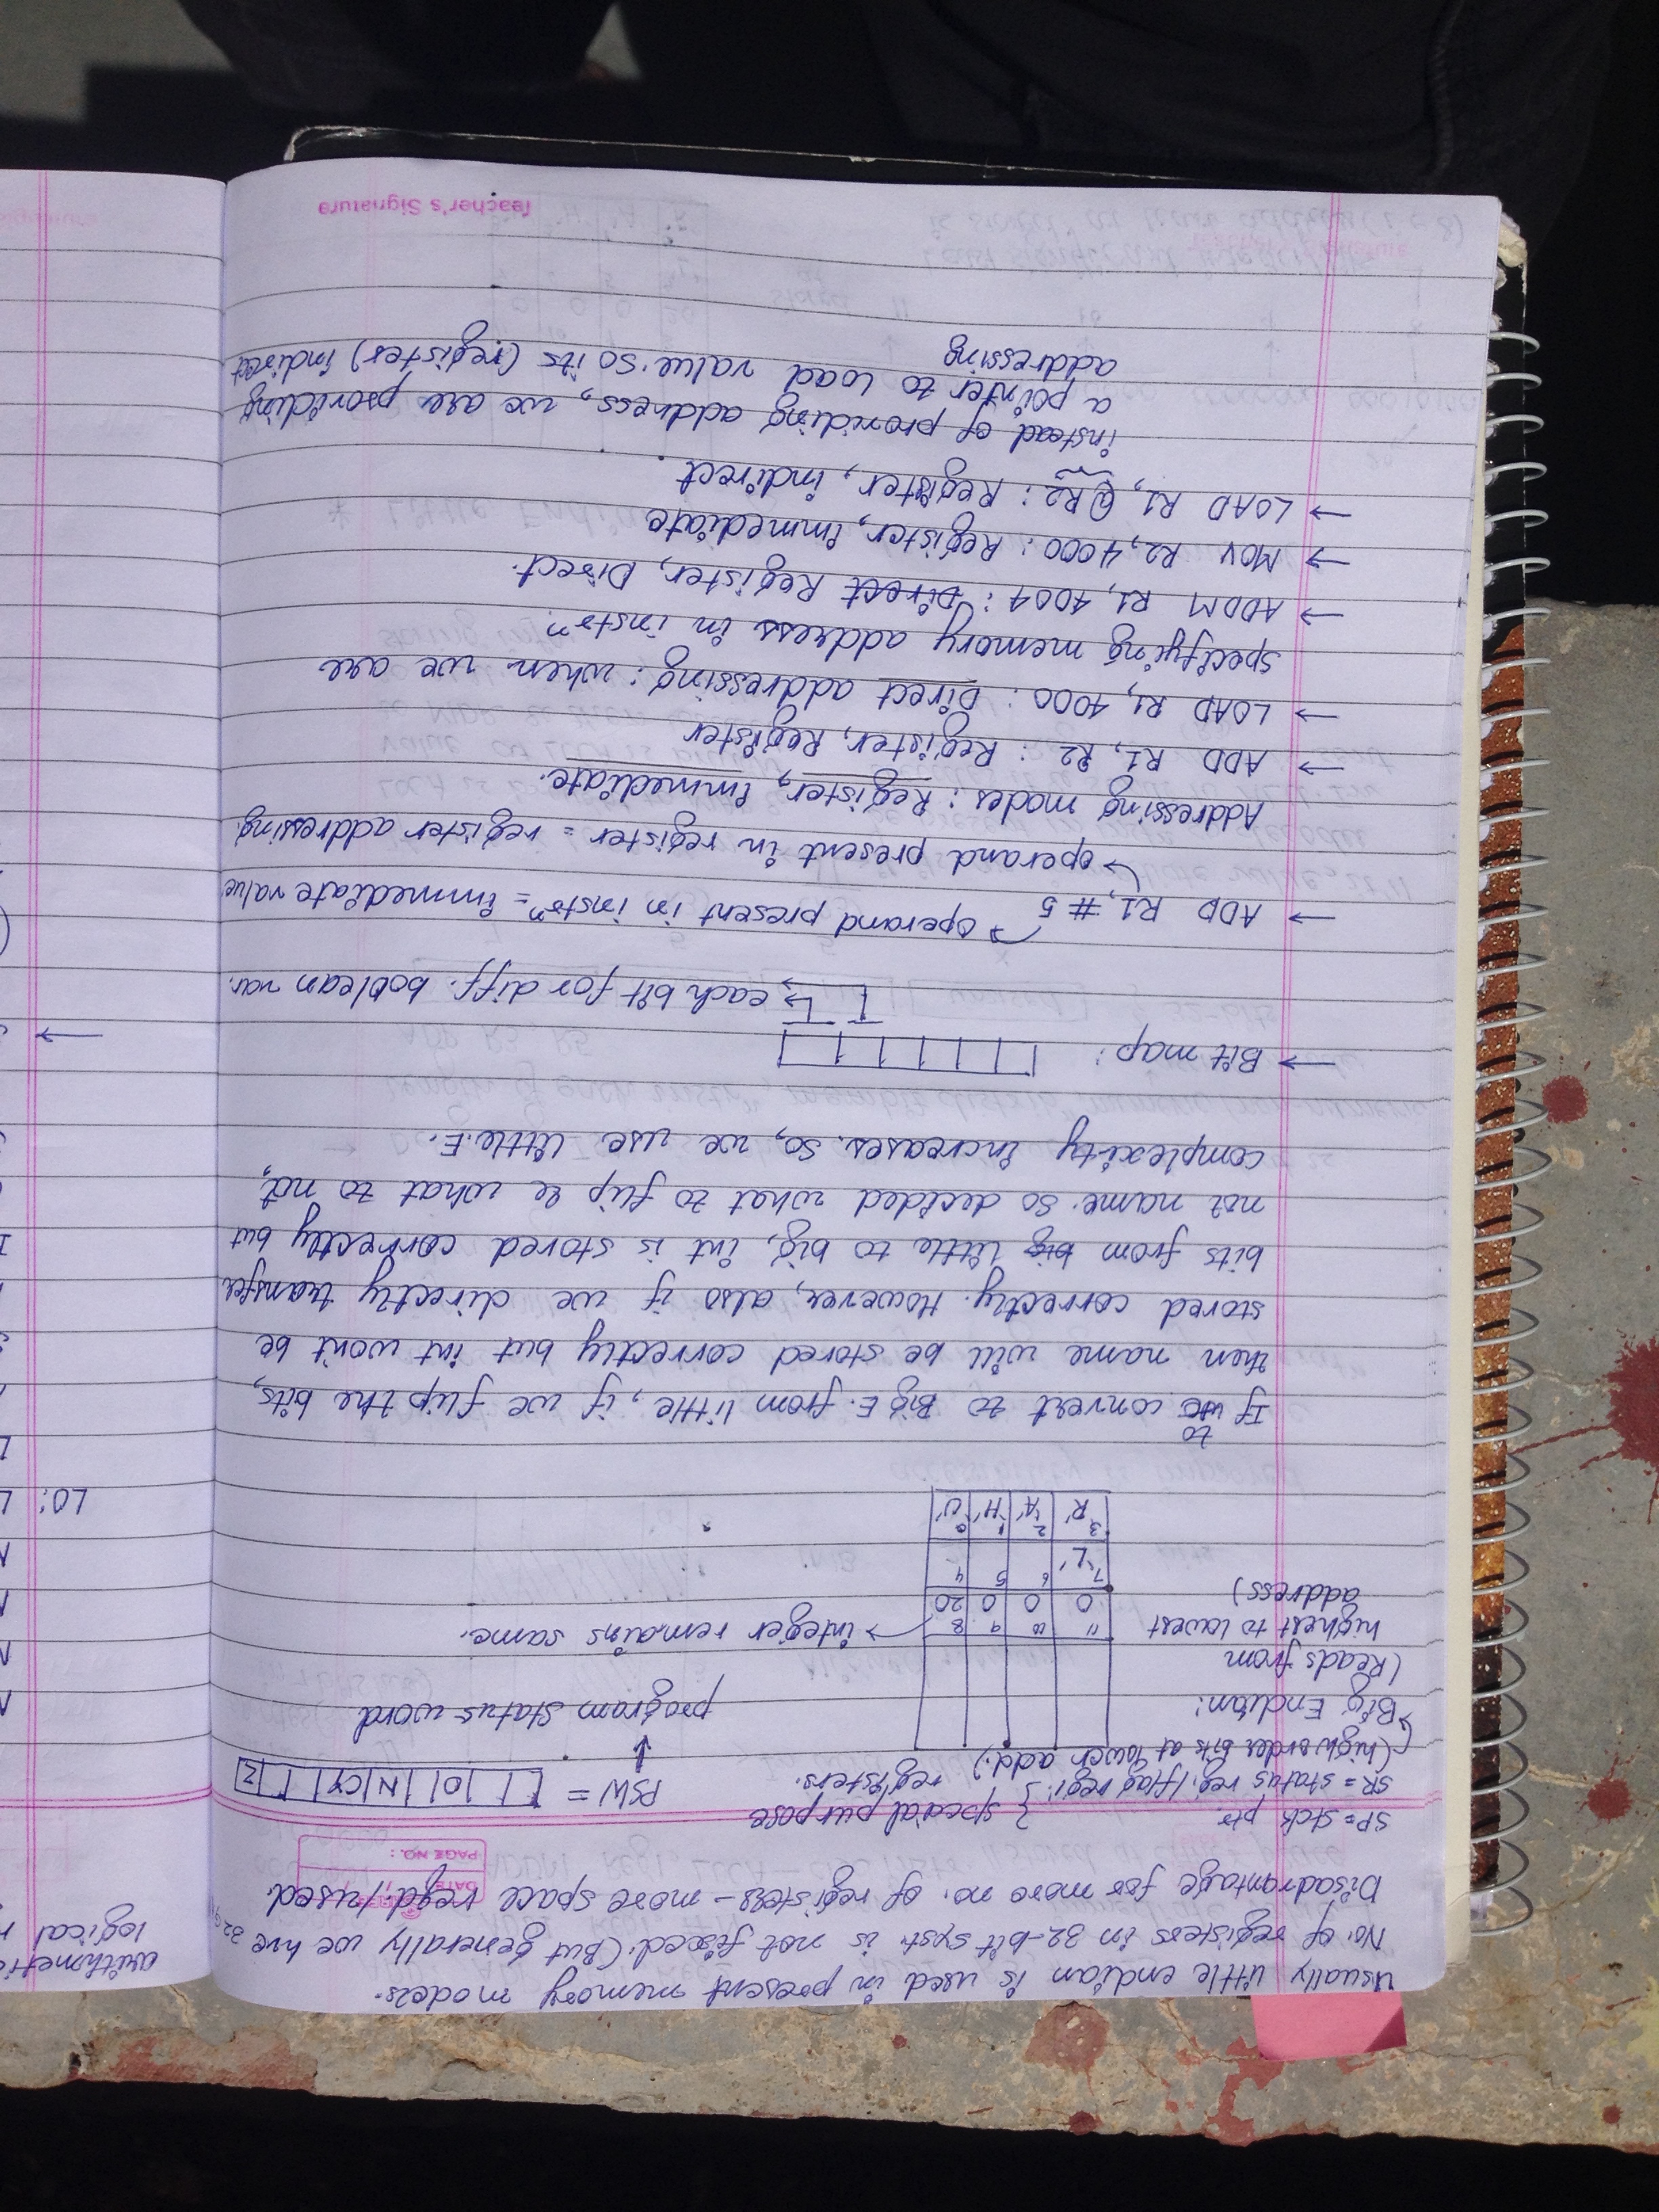 Usually little endian is used in present memory models.
No. of registers in 32-bit syst. is not fixed. (But generally we hve 32
Disadvantage for more no. of registers - more space reqd./used.
DATE
PAGE NO.:
SP = stck ptr } special purpose
SR = status reg./flag regi. registers.
PSW = O N CY Z
program status word
(high order bits at lower add.)
Big Endian:
(Reads from
highest to lowest
address)
11 10 9 8
0 0 0 20 → integer remains same.
7 6 5 4
'L'
3 2 1 0
'R' 'A' 'H' 'U'
If to convert to Big E. from little, if we flip the bits,
then name will be stored correctly but int won't be
stored correctly. However, also if we directly transfer
bits from big little to big, int is stored correctly but
not name. So decided what to flip & what to not,
complexity increases. So, we use little.E.
→ Bit map:
each bit for diff. boolean var.
→ ADD R1, #5 → operand present in instrⁿ = immediate value
↳ operand present in register = register addressing.
Addressing modes: Register, immediate.
→ ADD R1, R2 : Register, Register
→ LOAD R1, 4000 : Direct addressing : when we are
specifying memory address in instrⁿ.
→ ADDM R1, 4004 : Direct Register, Direct.
→ MOV R2, 4000 : Register, immediate
→ LOAD R1, @R2 : Register, indirect.
instead of providing address, we are providing
a pointer to load value. So its (register) indirect
addressing
Teacher's Signature
logical
LO: